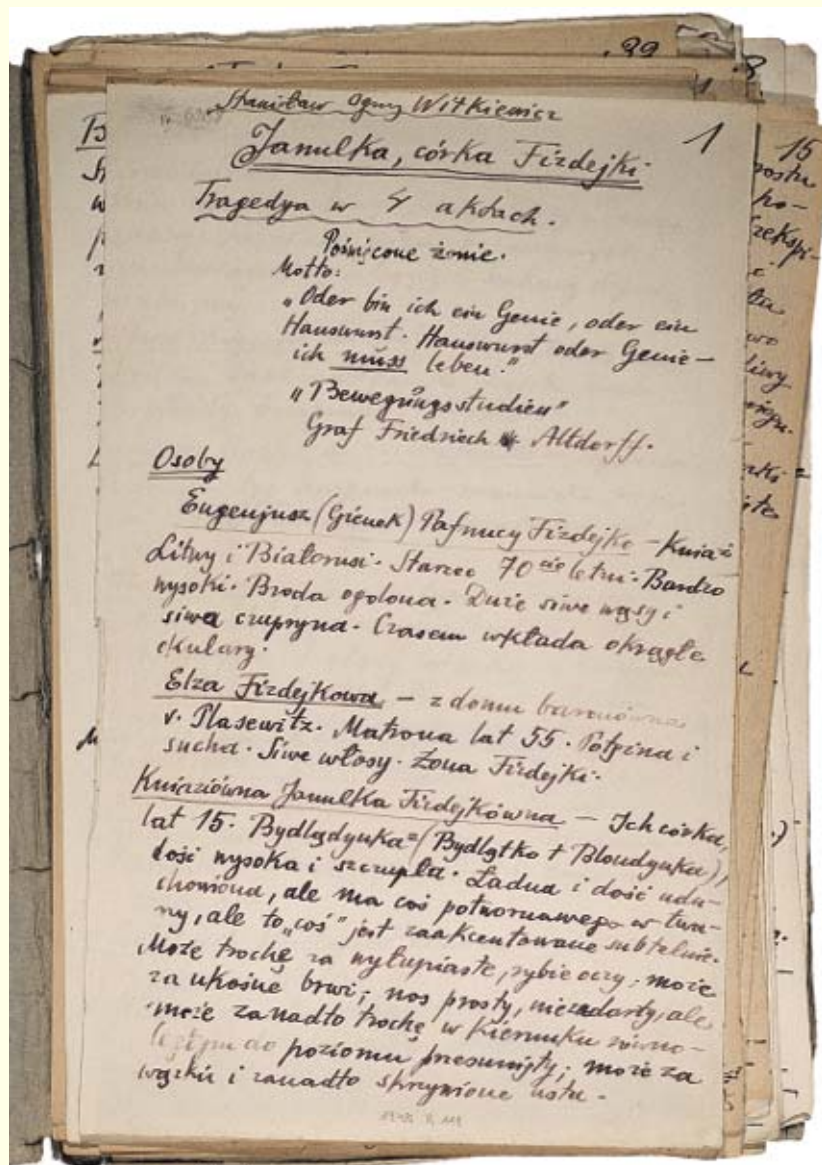 Stanisław Ignacy Witkiewicz
1
Janulka, córka Fizdejki.
Tragedya w 4 aktach.
Poświęcone żonie.
Motto:
„Oder bin ich ein Genie, oder ein
Hanswurst. Hanswurst oder Genie —
ich muss leben."
„Bewegungsstudien"
Graf Friedrich Altdorff.
Osoby
Eugenjusz (Gienek) Pafnucy Fizdejko — Kniaź
Litwy i Białorusi. Starzec 70cio letni. Bardzo
wysoki. Broda ogolona. Duże siwe wąsy i
siwa czupryna. Czasem wkłada okrągłe
okulary.
Elza Fizdejkowa — z domu baronówna
v. Plasewitz. Matrona lat 55. Potężna i
sucha. Siwe włosy. Żona Fizdejki.
Kniaziówna Janulka Fizdejkówna — Ich córka,
lat 15. Bydlądynka = (Bydlątko + Blondynka),
dość wysoka i szczupła. Ładna i dość udu-
chowiona, ale ma coś potwornawego w twa-
rzy, ale to „coś" jest zaakcentowane subtelnie.
Może trochę za wyłupiaste, rybie oczy; może
za ukośne brwi; nos prosty, niezadarty, ale
może zanadto trochę w kierunku równo-
ległym do poziomu przesunięty; może za
wązkie i zanadto skrzywione usta.
39
15